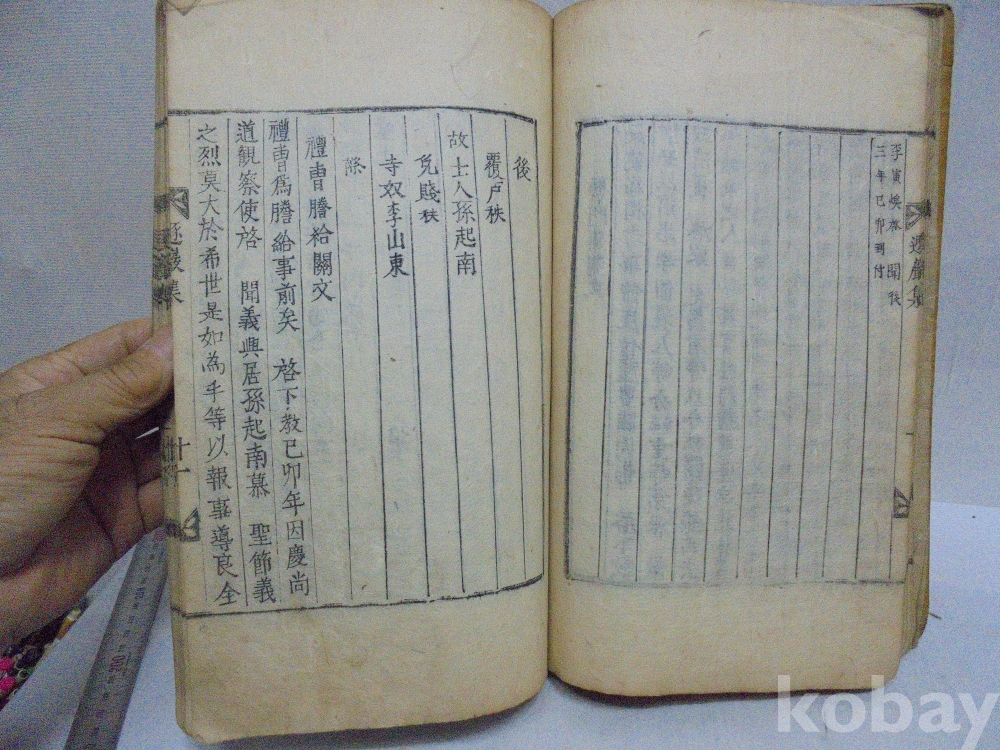 李寅煥啓 聞秩
三年己卯到付
遯巖集
後
覆户秩
故士人孫起南
免賤秩
寺奴李山東
際
禮曹謄給關文
禮曹爲謄給事前矣 啓下教己卯年因慶尚
道觀察使啓 聞義興居孫起南慕 聖節義
之烈莫大於希世是如為乎等以報事導良全
遯巖集
十一
kobay